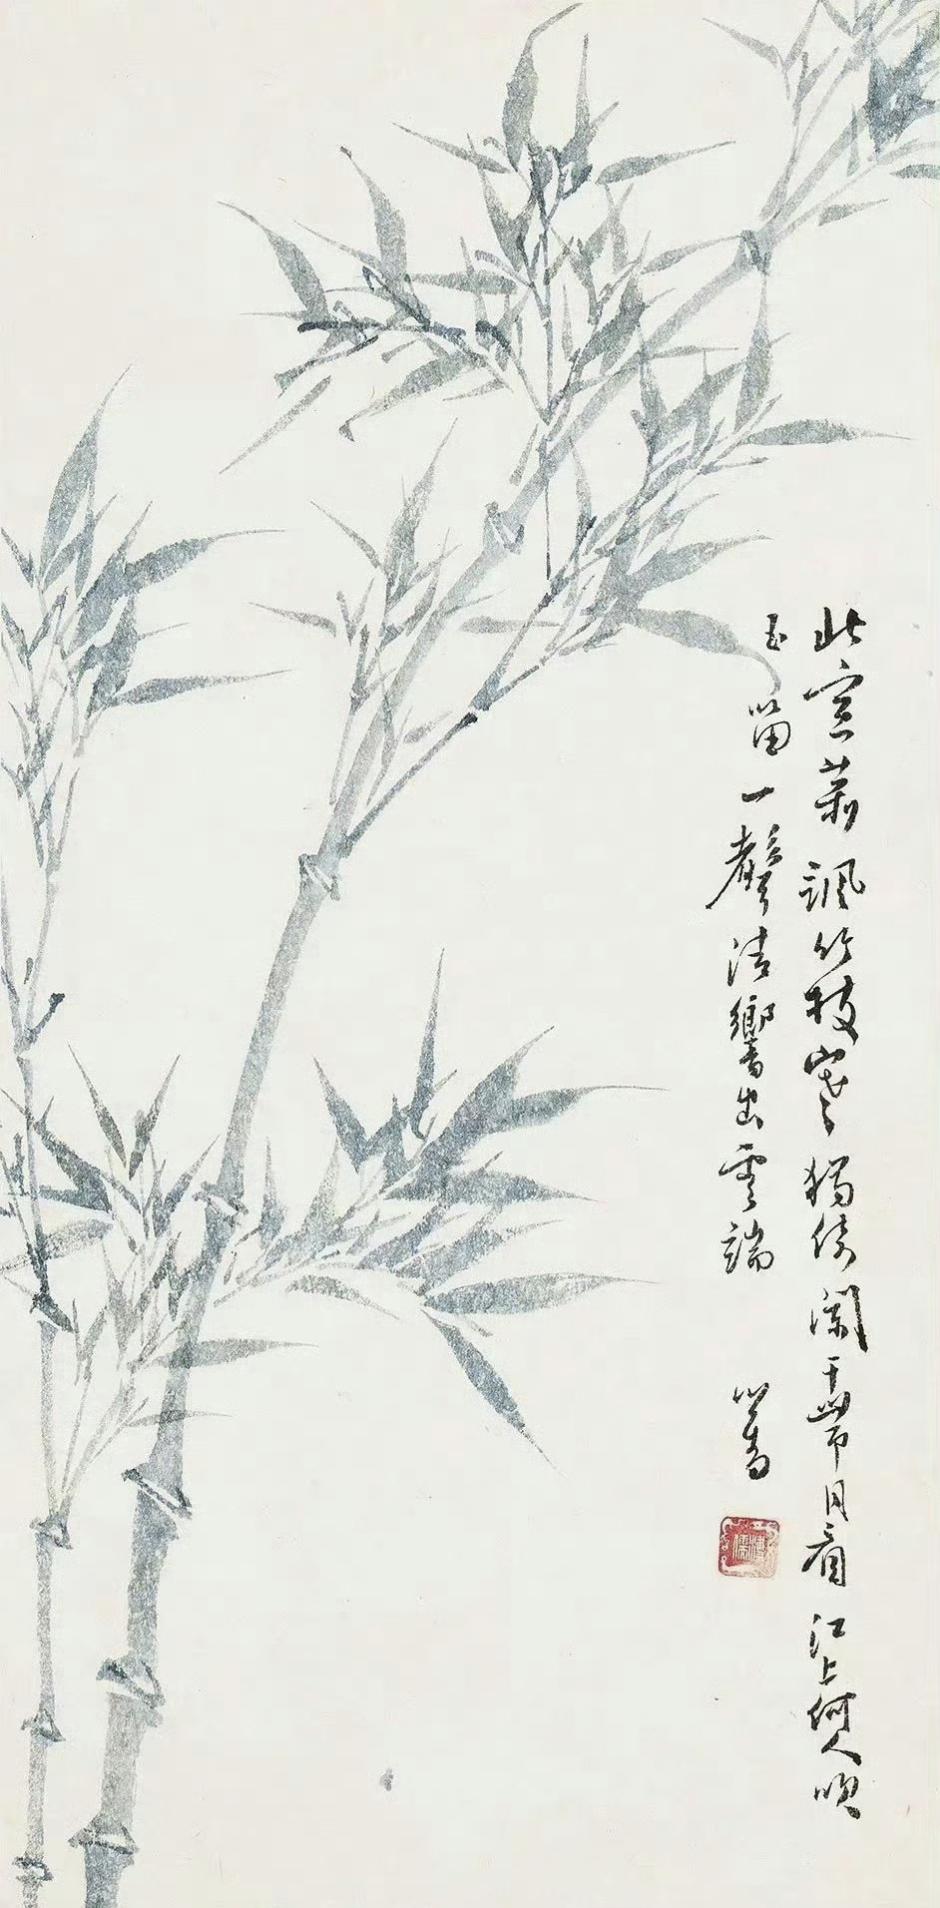 此室蕭颯竹枝寒獨倚闌干帶月看江上何人吹
玉留一聲清響出雲端
溥儒